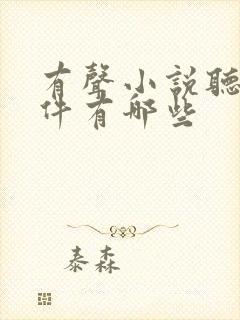 有聲小說聽
件有哪些
泰森